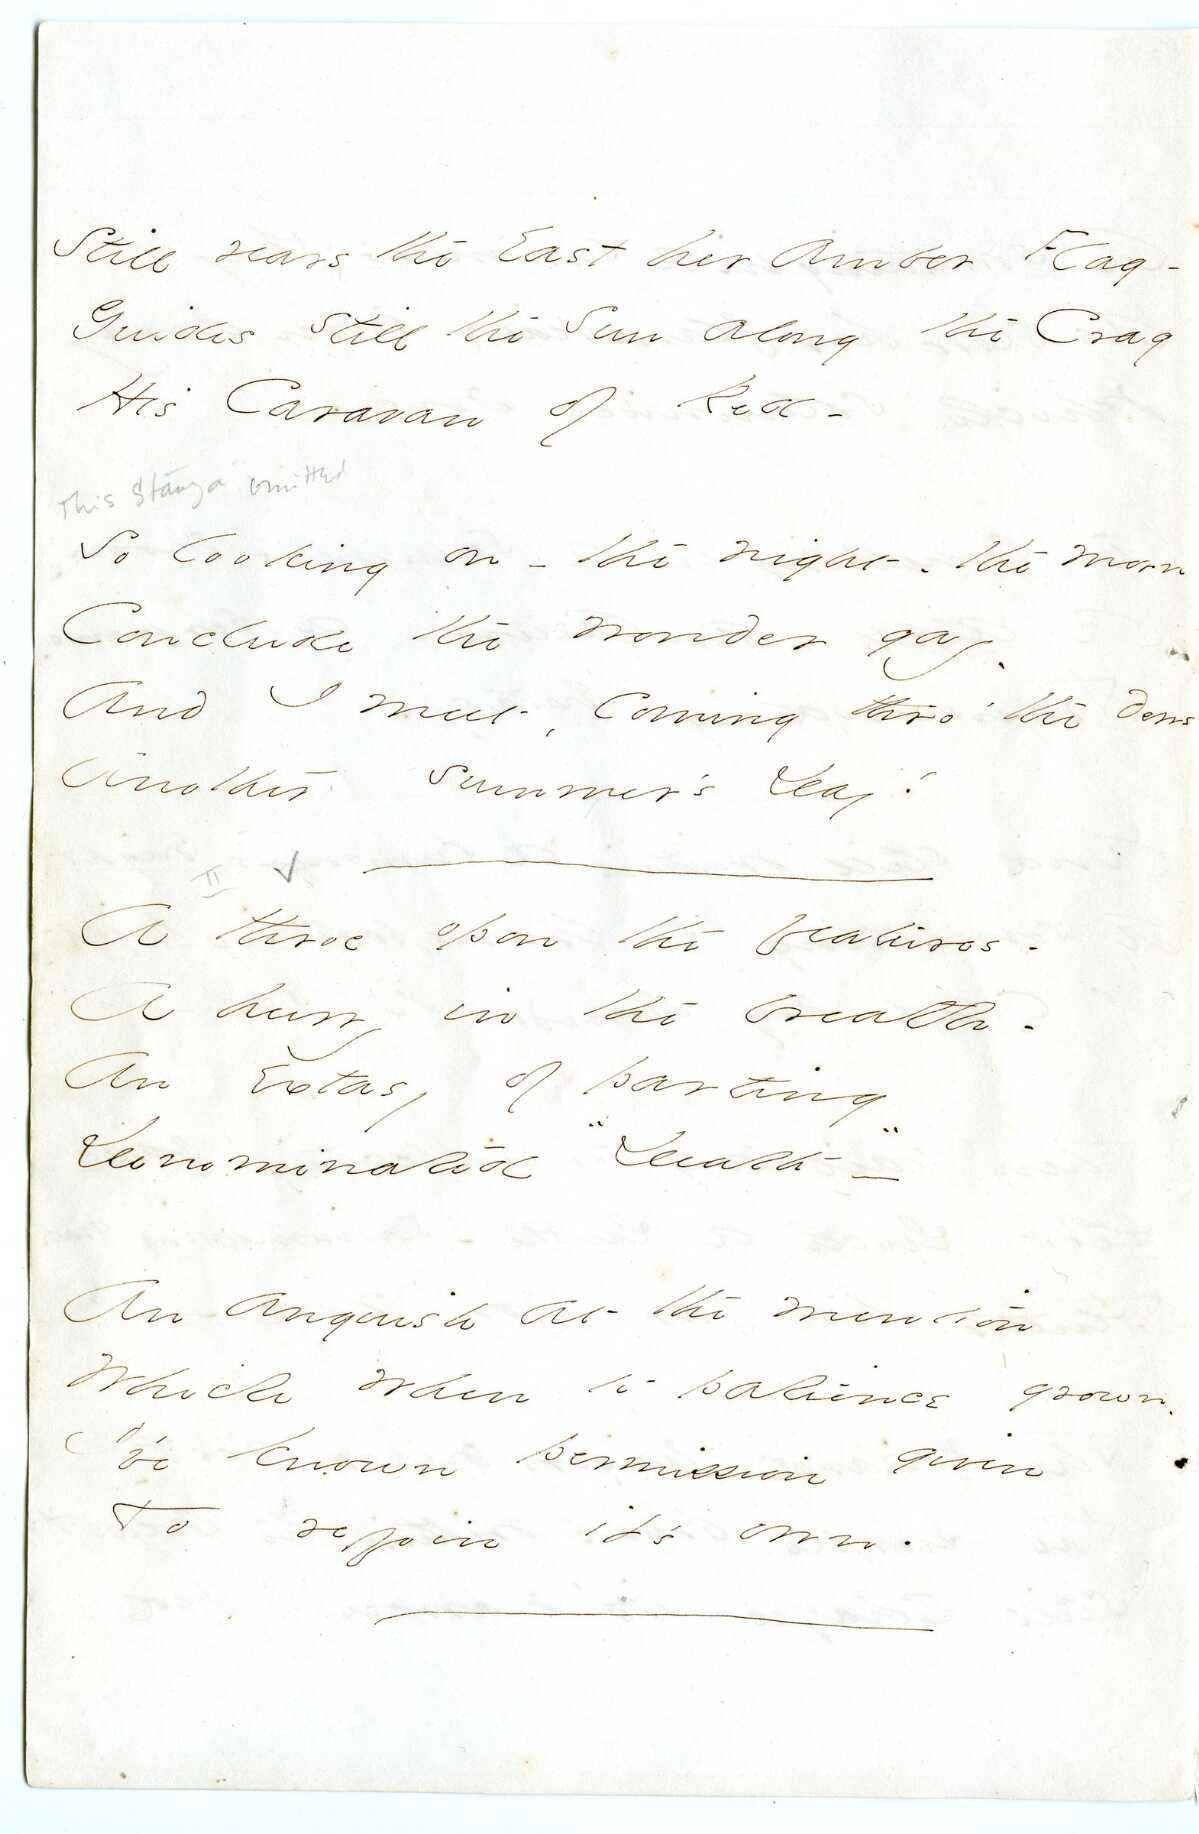 Still rears the East her Amber Flag -
Guides Still the Sun along the Crag
His Caravan of Red -
This Stanza omitted
So looking on - the night - the morn
Conclude the wonder gay -
And I meet, coming thro' the dews
Another Summer's Day!
II ✓
A throe upon the features -
A hurry in the breath -
An Extasy of parting
Denominated "Death" -
An anguish at the mention
Which when to patience grown -
I've known permission given
To rejoin it's own.